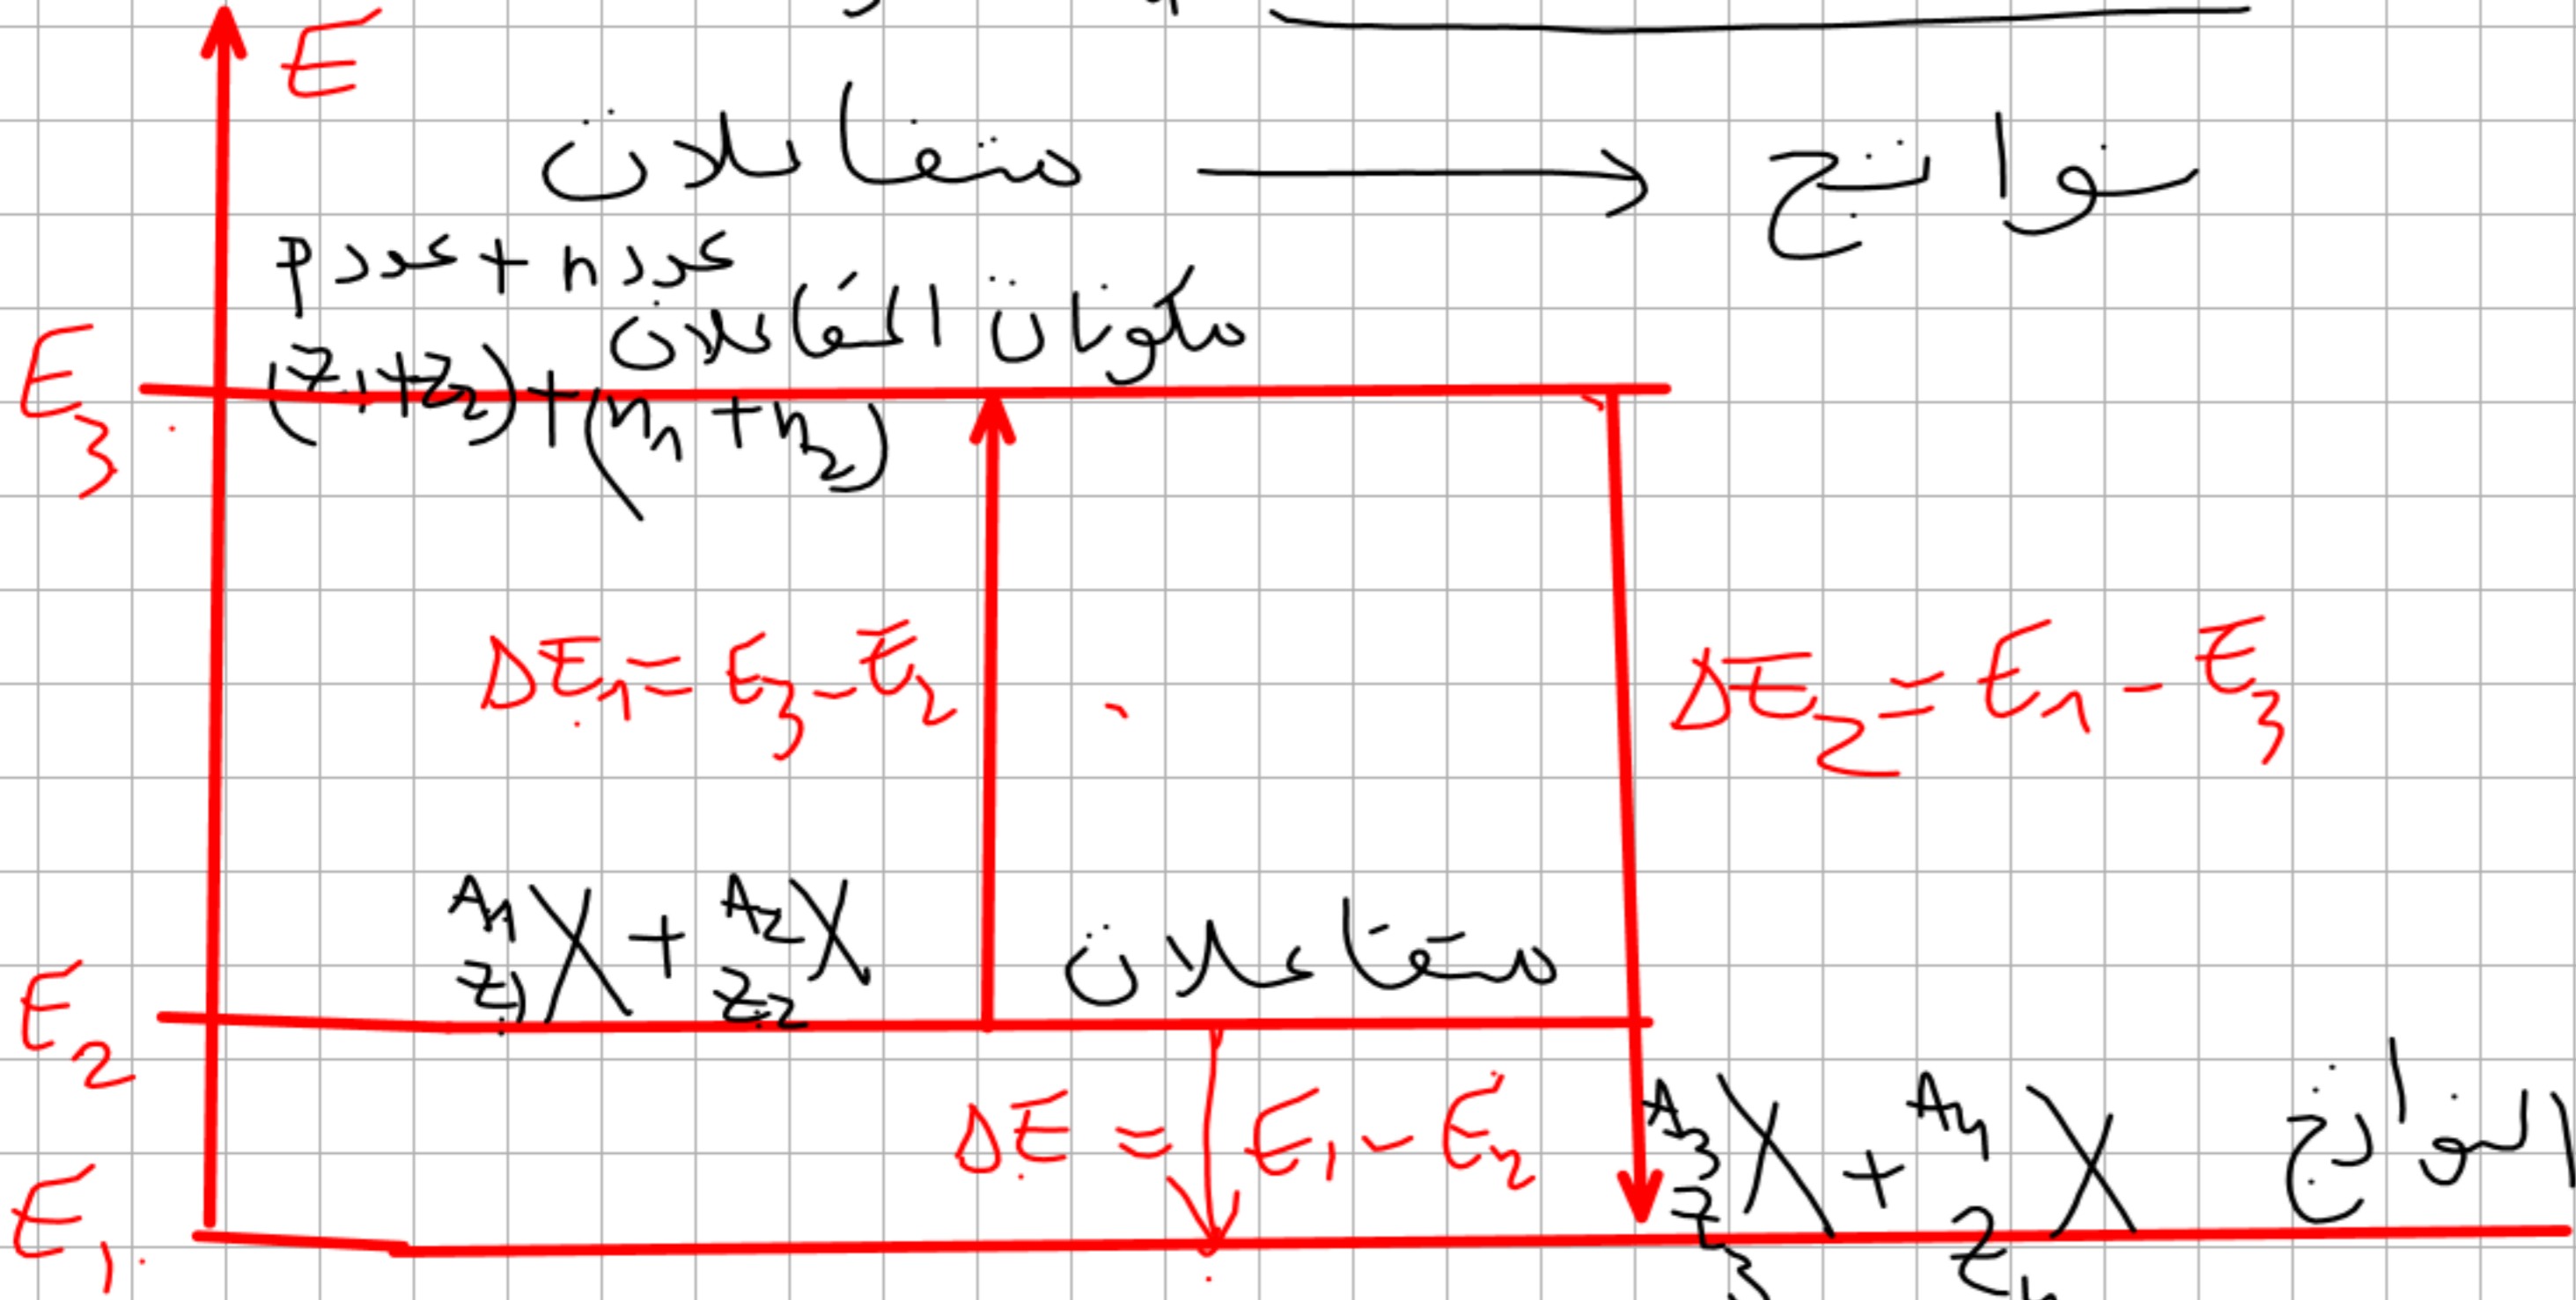 E
متفاعلات → نواتج
عدد p + عدد n
مكونات المتفاعلات
E₃
(Z₁+Z₂)+(n₁+n₂)
ΔE₁=E₃-E₂
ΔE₂=E₁-E₃
ᴬ¹Z₁X + ᴬ²Z₂X متفاعلات
E₂
ΔE = E₁-E₂
ᴬ³Z₃X + ᴬ⁴Z₄X النواتج
E₁